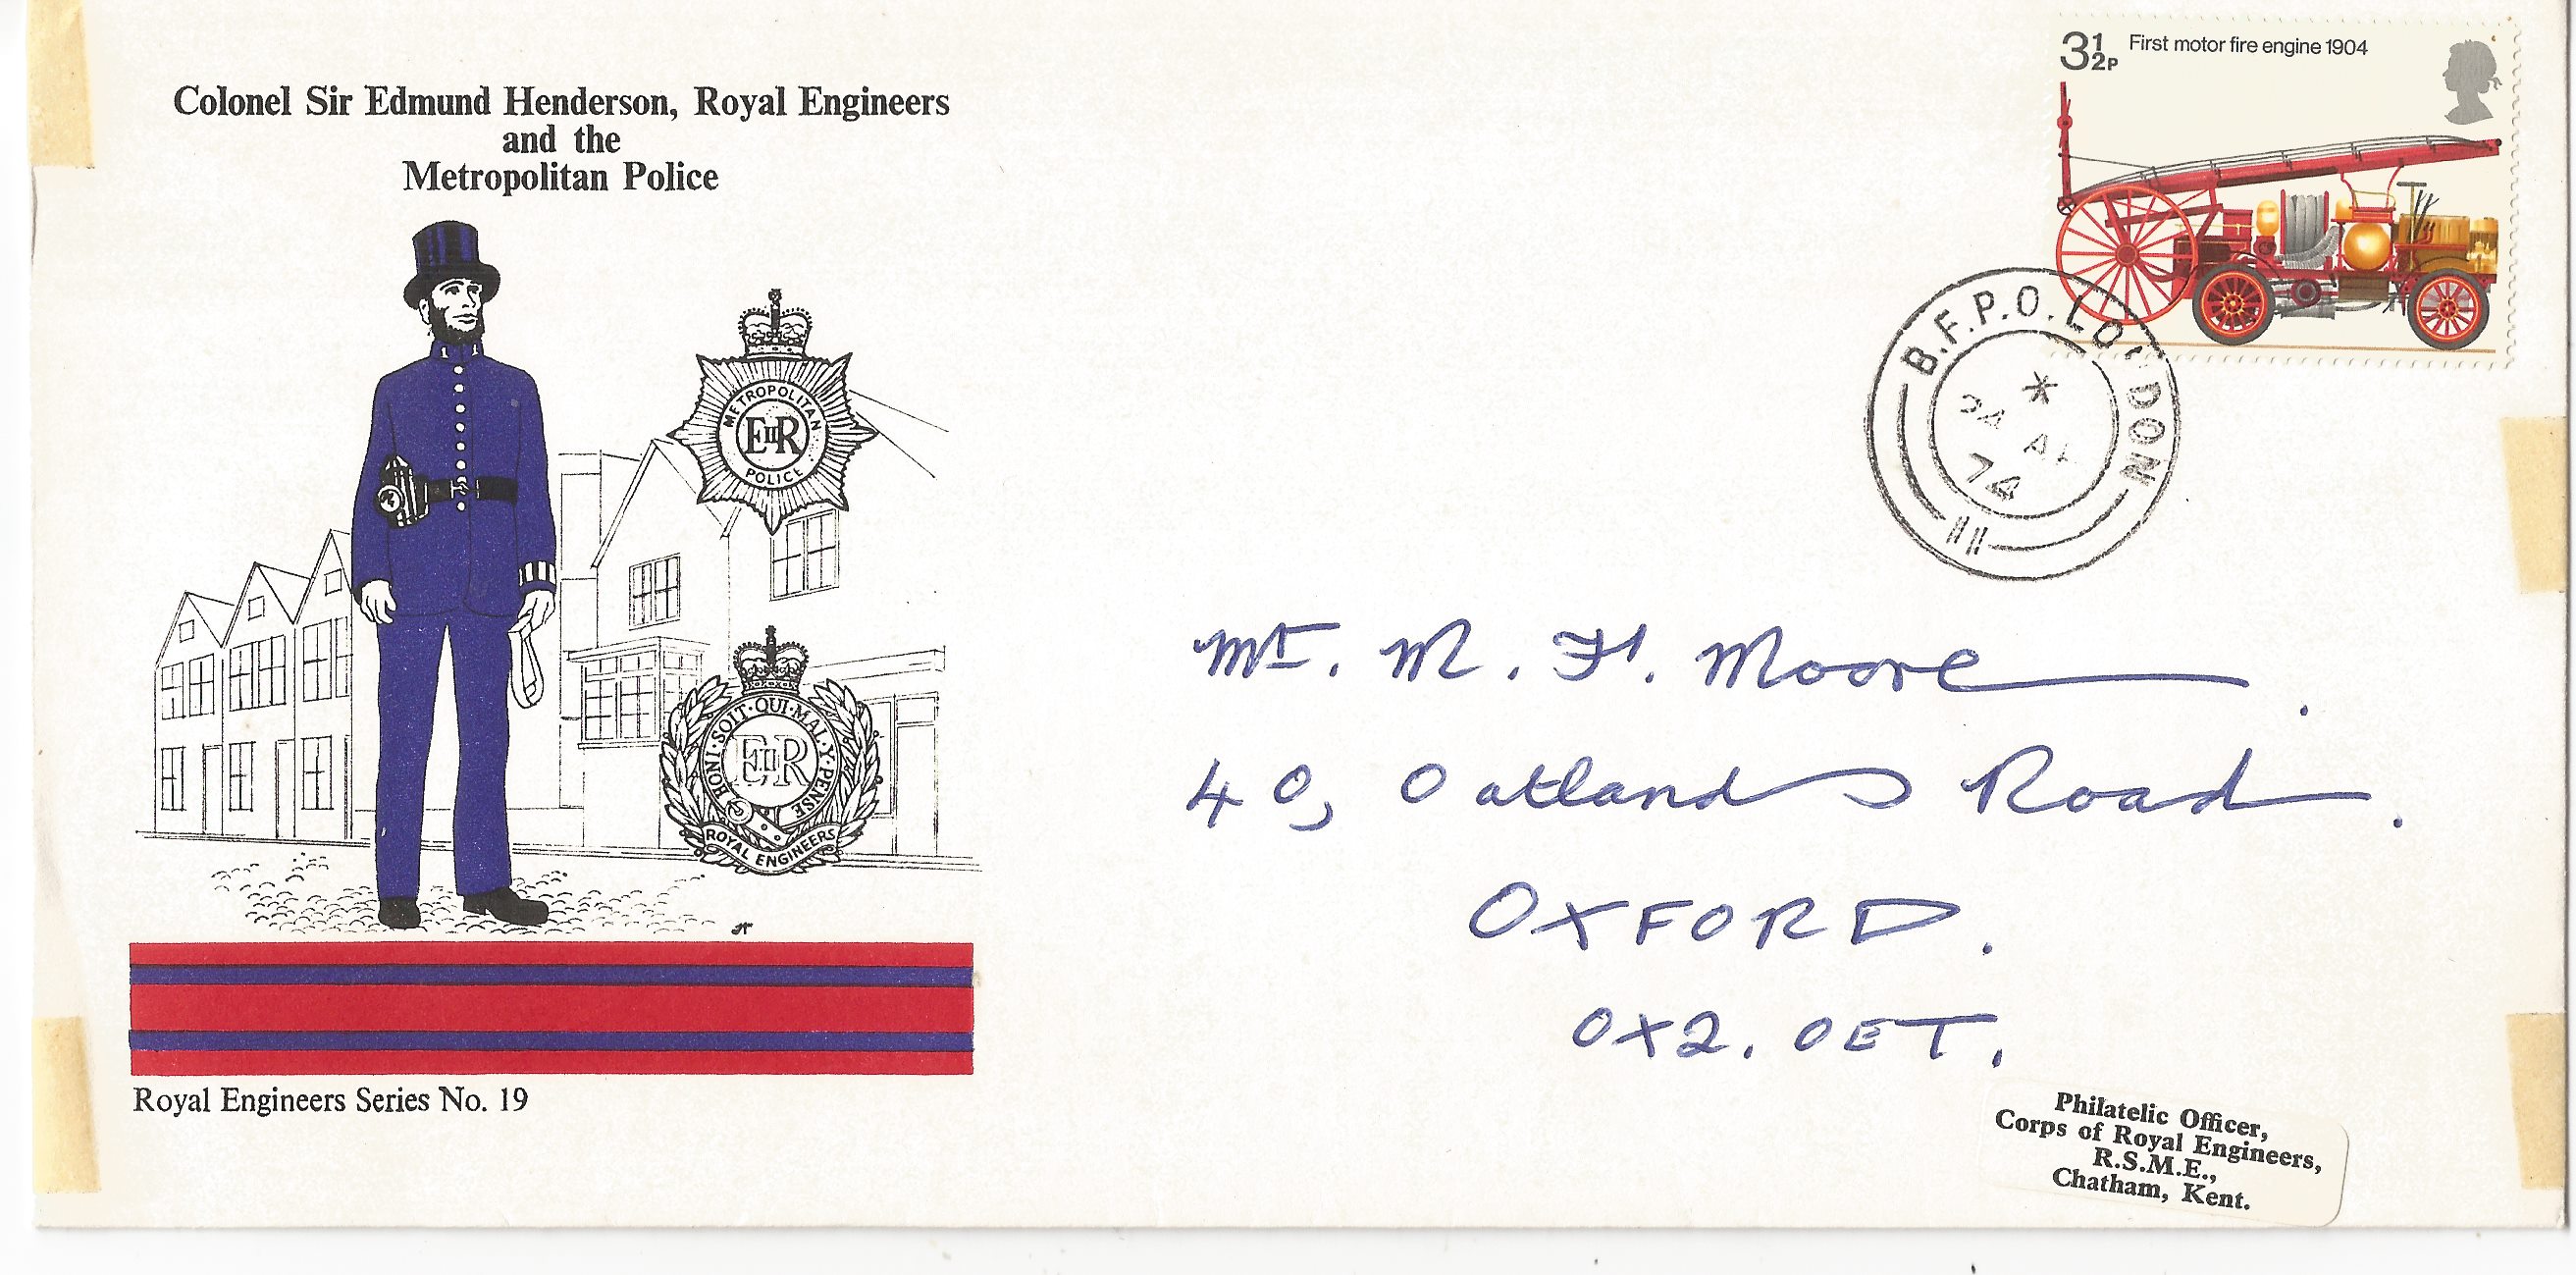 Colonel Sir Edmund Henderson, Royal Engineers
and the
Metropolitan Police
3½P First motor fire engine 1904
B.F.P.O. LONDON
*
24 AP
74
11
METROPOLITAN
EIIR
POLICE
HONI·SOIT·QUI·MAL·Y·PENSE
EIIR
ROYAL ENGINEERS
Mr. M. F. Moore.
40, Oatlands Road.
OXFORD.
OX2. 0ET.
Royal Engineers Series No. 19
Philatelic Officer,
Corps of Royal Engineers,
R.S.M.E.,
Chatham, Kent.